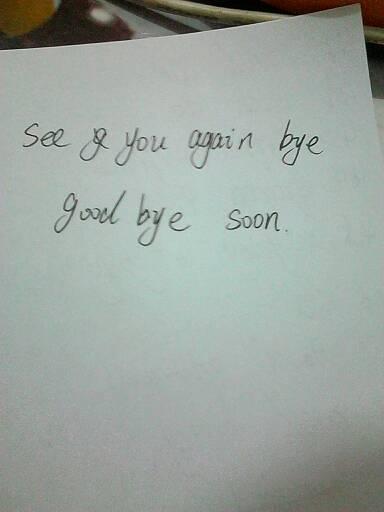 See you again bye
good bye soon.